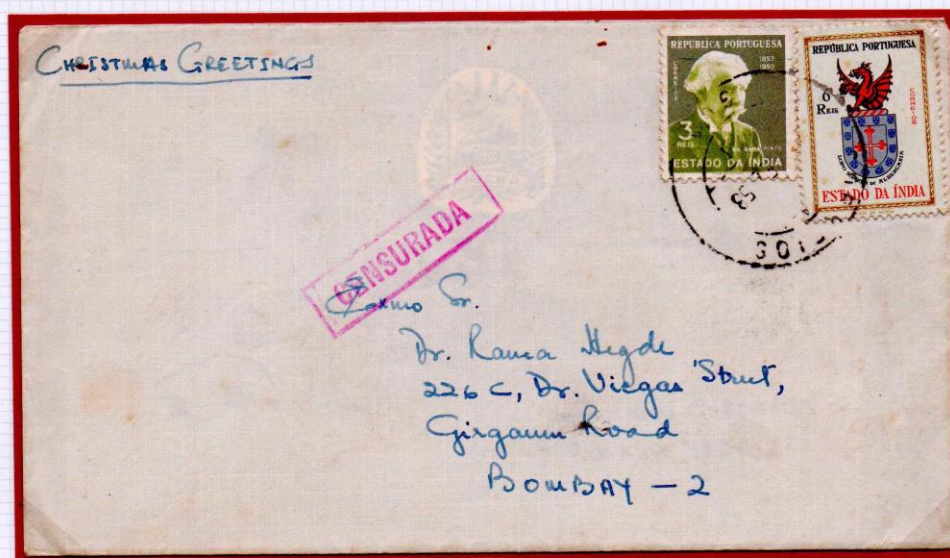 CHRISTMAS GREETINGS
REPÚBLICA PORTUGUESA
1853
1953
3
REIS
ESTADO DA ÍNDIA
REPÚBLICA PORTUGUESA
6
REIS
ESTADO DA ÍNDIA
CENSURADA
Exmo Sr.
Dr. Rama Hegde
226 C, Dr. Viegas Street,
Girgaum Road
BOMBAY - 2